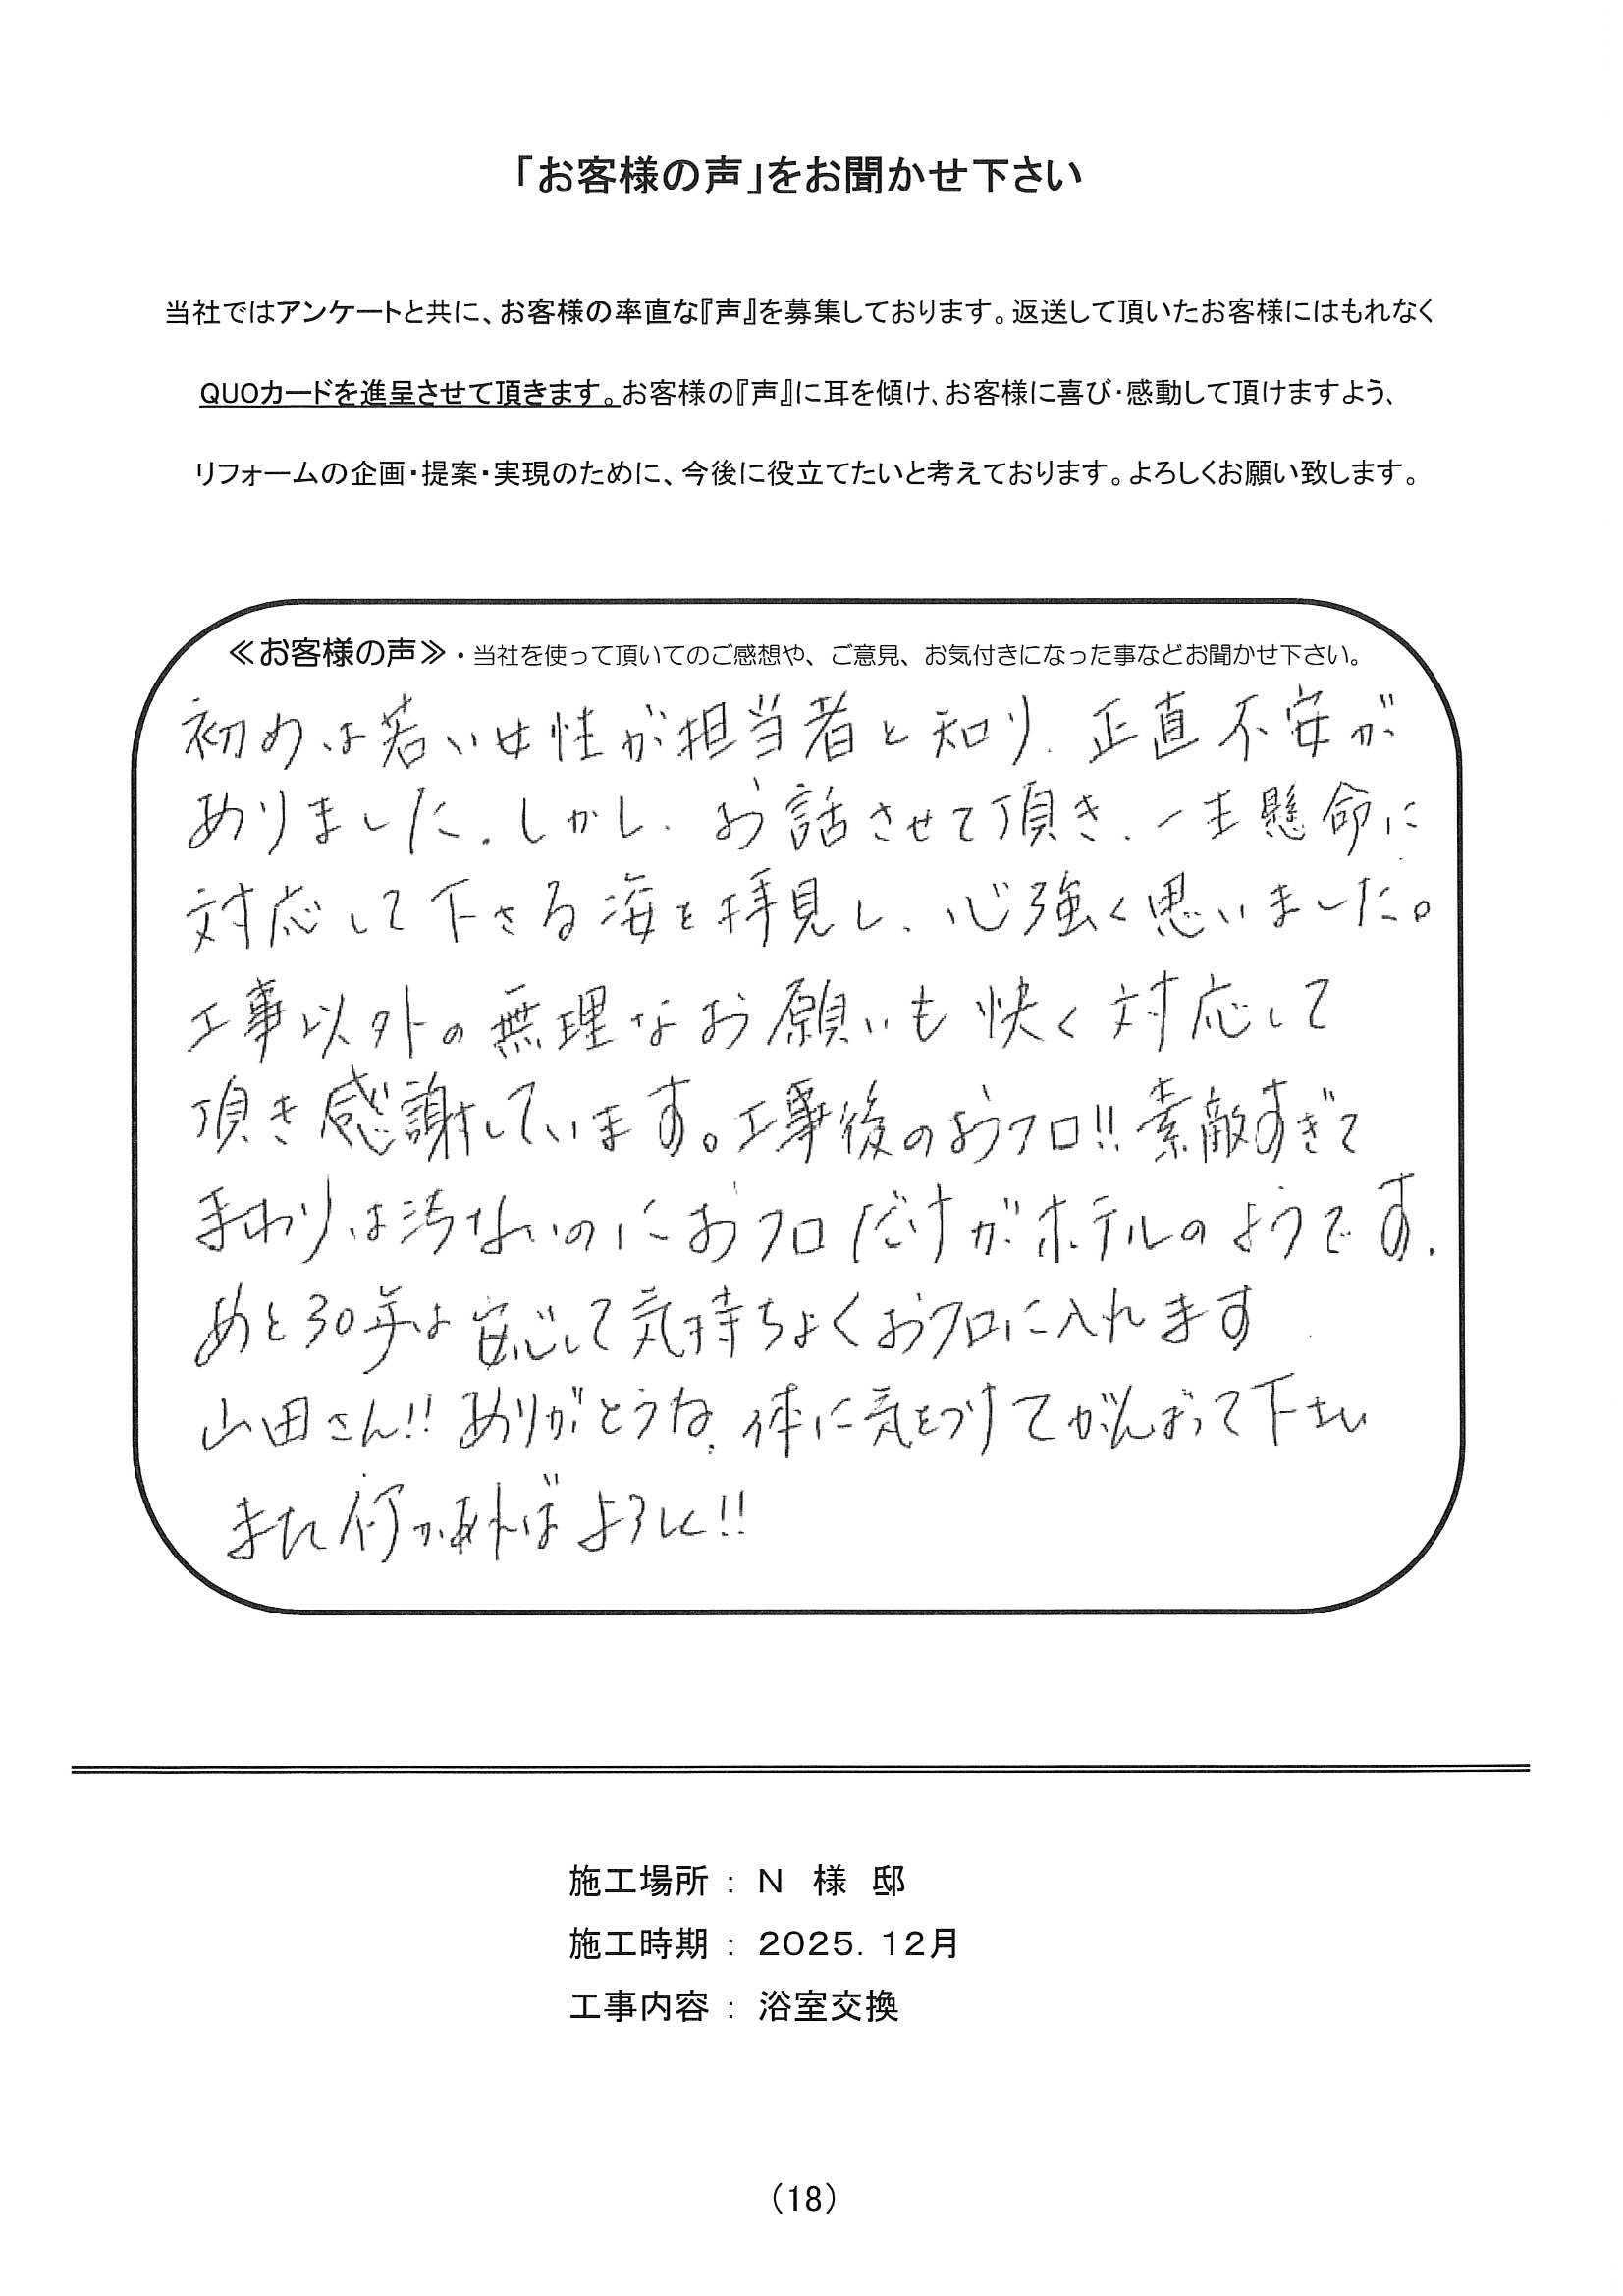 「お客様の声」をお聞かせ下さい
当社ではアンケートと共に、お客様の率直な『声』を募集しております。返送して頂いたお客様にはもれなく
QUOカードを進呈させて頂きます。お客様の『声』に耳を傾け、お客様に喜び・感動して頂けますよう、
リフォームの企画・提案・実現のために、今後に役立てたいと考えております。よろしくお願い致します。
≪お客様の声≫・当社を使って頂いてのご感想や、ご意見、お気付きになった事などお聞かせ下さい。
初めは若い女性が担当者と知り、正直不安が
ありました。しかし、お話させて頂き、一生懸命に
対応して下さる姿を拝見し、心強く思いました。
工事以外の無理なお願いも快く対応して
頂き感謝しています。工事後のおフロ!!素敵すぎて
まわりは汚ないのにおフロだけがホテルのようです。
あと30年は安心して気持ちよくおフロに入れます
山田さん!!ありがとうね、体に気をつけてがんばって下さい
また何かあればよろしく!!
施工場所 : N 様 邸
施工時期 : 2025.12月
工事内容 : 浴室交換
(18)